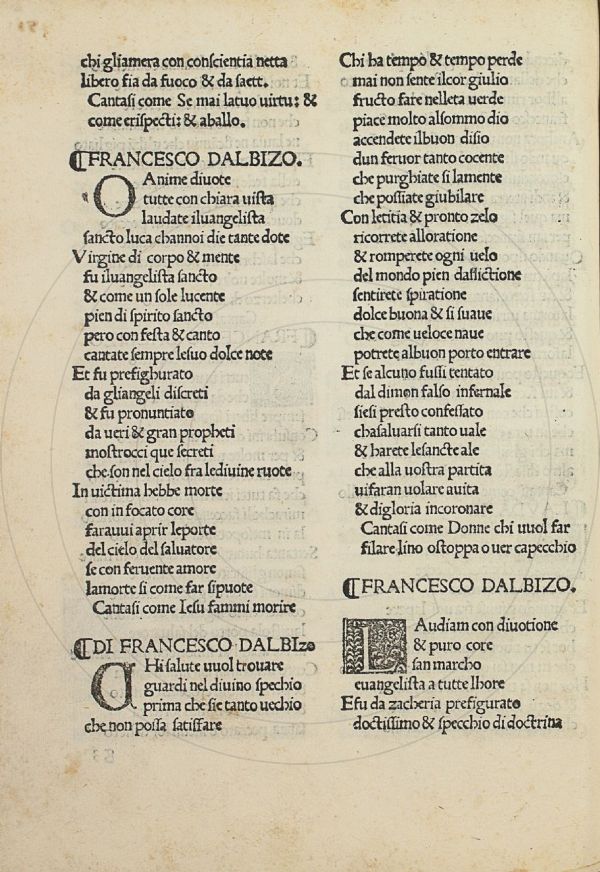 chi gliamera con conscientia netta
libero fia da fuoco & da saett.
Cantasi come Se mai latuo uirtu: &
come erispecti: & aballo.
⸿FRANCESCO DALBIZO.
O Anime diuote
tutte con chiara uista
laudate iluangelista
sancto luca channoi die tante dote
Virgine di corpo & mente
fu iluangelista sancto
& come un sole lucente
pien di spirito sancto
pero con festa & canto
cantate sempre Iesuo dolce note
Et fu prefighurato
da gliangeli discreti
& fu pronuntiato
da ueri & gran propheti
mostrocci que secreti
che son nel cielo fra lediuine ruote
In uictima hebbe morte
con in focato core
farauui aprir leporte
del cielo del saluatore
se con feruente amore
lamorte si come far sipuote
Cantasi come Iesu fammi morire
⸿DI FRANCESCO DALBIzo
CHi salute uuol trouare
guardi nel diuino spechio
prima che sie tanto uechio
che non possa satisfare
Chi ha tempo & tempo perde
mai non sente ilcor giulio
fructo fare nelleta uerde
piace molto alsommo dio
accendete ilbuon disio
dun feruor tanto cocente
che purghiate si lamente
che possiate giubilare
Con letitia & pronto zelo
ricorrete alloratione
& romperete ogni uelo
del mondo pien dafflictione
sentirete spiratione
dolce buona & si suaue
che come ueloce naue
potrete albuon porto entrare
Et se alcuno fussi tentato
dal dimon falso infernale
siesi presto confessato
chasaluarsi tanto uale
& harete lesancte ale
che alla uostra partita
uifaran uolare auita
& digloria incoronare
Cantasi come Donne chi uuol far
filare lino ostoppa o uer capecchio
⸿FRANCESCO DALBIZO.
LAudiam con diuotione
& puro core
san marcho
euangelista a tutte lhore
Efu da zacheria prefigurato
doctissimo & specchio di doctrina